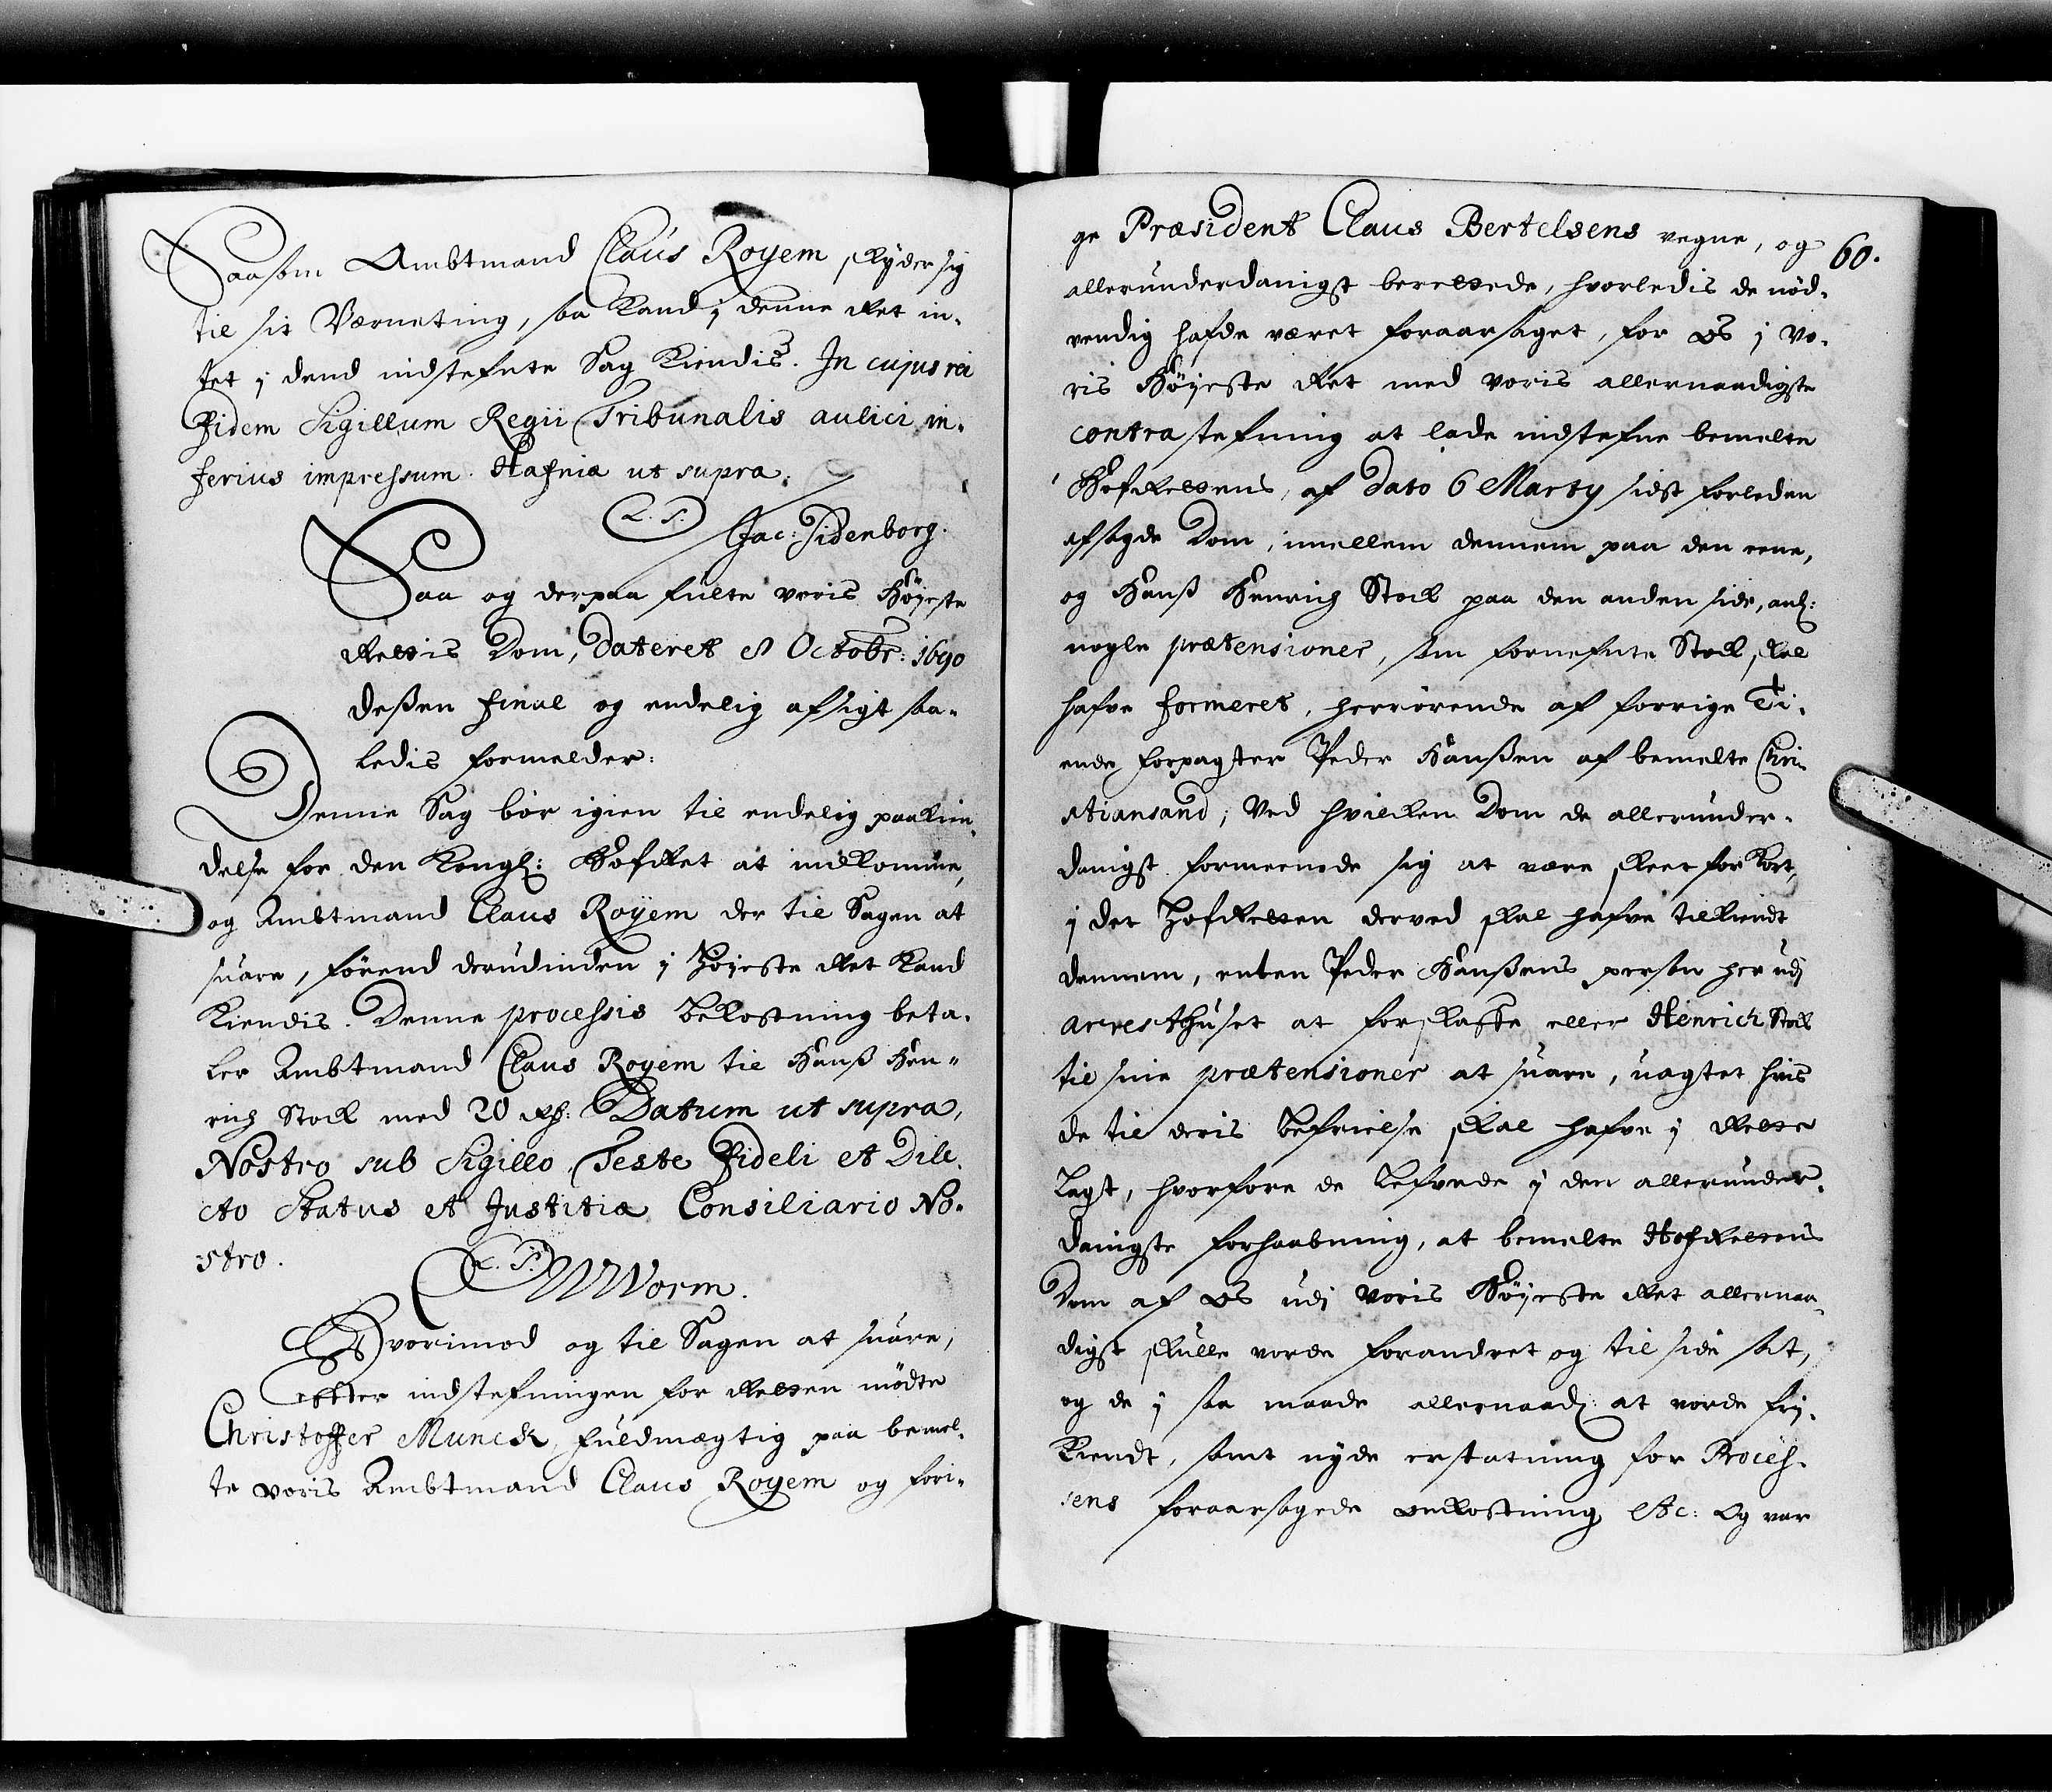 Saasom Ambtmand Claus Royem skyder sig
til sit Værneting, saa kand j denne Ret in-
tet j dend indstefnte Sag kiendis. In cujus rei
Fidem Sigillum Regii Tribunalis aulici in-
ferius impressum. Hafniæ ut supra.
L. S. Jac: Sidenborg.
Saa og derpaa fulte voris Høyeste
Rettis Dom, Dateret 8 Octobr: 1690
deßen final og endelig afsigt saa-
ledis formelder:
Denne Sag bør igien til endelig paakien-
delse for den Kongl: HofRet at indkomme,
og Ambtmand Claus Royem der til Sagen at
suare, førend derudinden j Høyeste Ret kand
kiendis. Denne processis bekostning beta-
ler Ambtmand Claus Royem til Hanß Hen-
rich Stoch med 20 Rd: Datum ut supra,
Nostro sub Sigillo, Teste Fideli et Dile-
cto Status et Justitiæ Consiliario No-
stro.
L. S. WWorm.
Hvorimod og til Sagen at suare,
Efter indstefningen for Retten mødte
Christoffer Munck, fuldmægtig paa bemel-
te voris Ambtmand Claus Royem og fori-
ge Præsident Claus Bertelsens vegne, og
60.
allerunderdanigst berettede, hvorledis de nød-
vendig hafde været foraarsaget, for os j vo-
ris Høyeste Ret med voris allernaadigste
contrastefning at lade indstefne bemelte
HofRettens, af dato 6 Marty sidst forleden
afsagde Dom, imellem dennem paa den eene,
og Hanß Henrich Stoch paa den anden side, anl:
nogle prætensioner, som fornefnte Stoch skal
hafve formeret, herrørende af forrige Ti-
ende forpagter Peder Hanßen af bemelte Chri-
stiansand; Ved hvilken Dom de allerunder-
danigst formeenede sig at være skeet for kort,
j det HofRetten derved skal hafve tilkiendt
dennem, enten Peder Hanßens person her udj
arresthuset at forskaffe eller Henrich Stoch
til sine prætensioner at suare, uagtet hvis
de til deris befrielse skal hafve j Rette
lagt, hvorfore de lefvede j den allerunder-
danigste forhaabning, at bemelte HofRettens
Dom af os udj voris Høyeste Ret allernaa-
digst skulle vorde forandret og til side sat,
og de j saa maade allernaad: at vorde frj-
kiendt, samt nyde erstatning for Proces-
sens foraarsagede omkostning etc: Og var